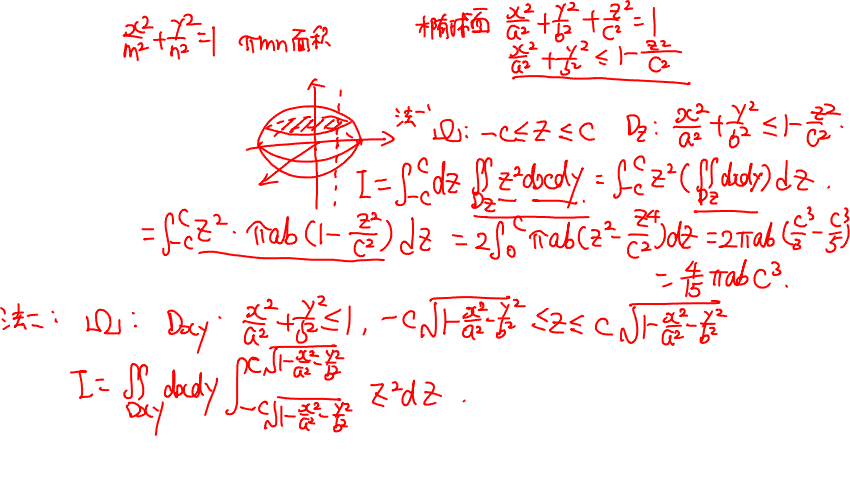 x²/m² + y²/n² = 1 πmn面积
椭球面 x²/a² + y²/b² + z²/c² = 1
x²/a² + y²/b² ≤ 1 - z²/c²
法一 Ω: -c ≤ z ≤ c Dz: x²/a² + y²/b² ≤ 1 - z²/c².
I = ∫_{-c}^{c} dz ∬_{Dz} z² dxdy = ∫_{-c}^{c} z² (∬_{Dz} dxdy) dz.
= ∫_{-c}^{c} z² · πab (1 - z²/c²) dz = 2∫_{0}^{c} πab (z² - z⁴/c²) dz = 2πab (c³/3 - c³/5)
= 4/15 πabc³.
法二: Ω: Dxy: x²/a² + y²/b² ≤ 1, -c√(1 - x²/a² - y²/b²) ≤ z ≤ c√(1 - x²/a² - y²/b²)
I = ∬_{Dxy} dxdy ∫_{-c√(1 - x²/a² - y²/b²)}^{c√(1 - x²/a² - y²/b²)} z² dz.